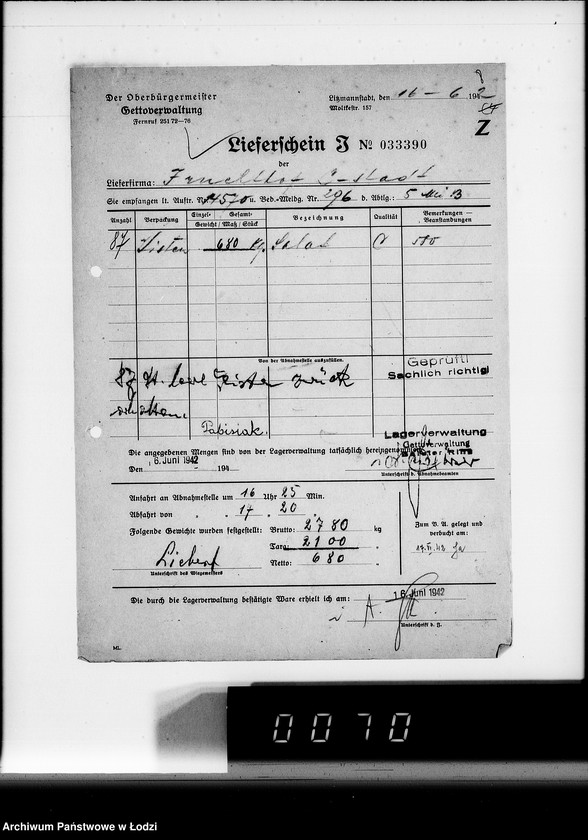 Der Oberbürgermeister
Gettoverwaltung
Fernruf 251 72—76
Litzmannstadt, den 16 - 6. 1942
Moltkestr. 157
Z
Lieferschein J № 033390
der
Lieferfirma: Fruchthof L-stadt
Sie empfangen lt. Auftr. Nr. 4570 u. Bed.-Meldg. Nr. 296 d. Abtlg.:
Anzahl Verpackung Einzel- Gesamt- Gewicht / Maß / Stück Bezeichnung Qualität Bemerkungen — Beanstandungen
87 Kisten 680 Kg. Salat
Von der Abnahmestelle auszufüllen.
Geprüft!
Sachlich richtig!
87 St. leere Kisten zurück
erhalten.
Pabisiak.
Lagerverwaltung
Gettoverwaltung
Die angegebenen Mengen sind von der Lagerverwaltung tatsächlich hereingenommen
Den 16. Juni 1942 194
Unterschrift d. Abnahmebeamten
Anfahrt an Abnahmestelle um 16 Uhr 25 Min.
Abfahrt von „ „ 17 „ 20 „
Folgende Gewichte wurden festgestellt: Brutto: 2780 kg
Tara: 2100 „
Netto: 680 „
Unterschrift des Wiegemeisters
Zum B. A. gelegt und
verbucht am:
Die durch die Lagerverwaltung bestätigte Ware erhielt ich am: 16. Juni 1942
ML.
0070
Archiwum Państwowe w Łodzi